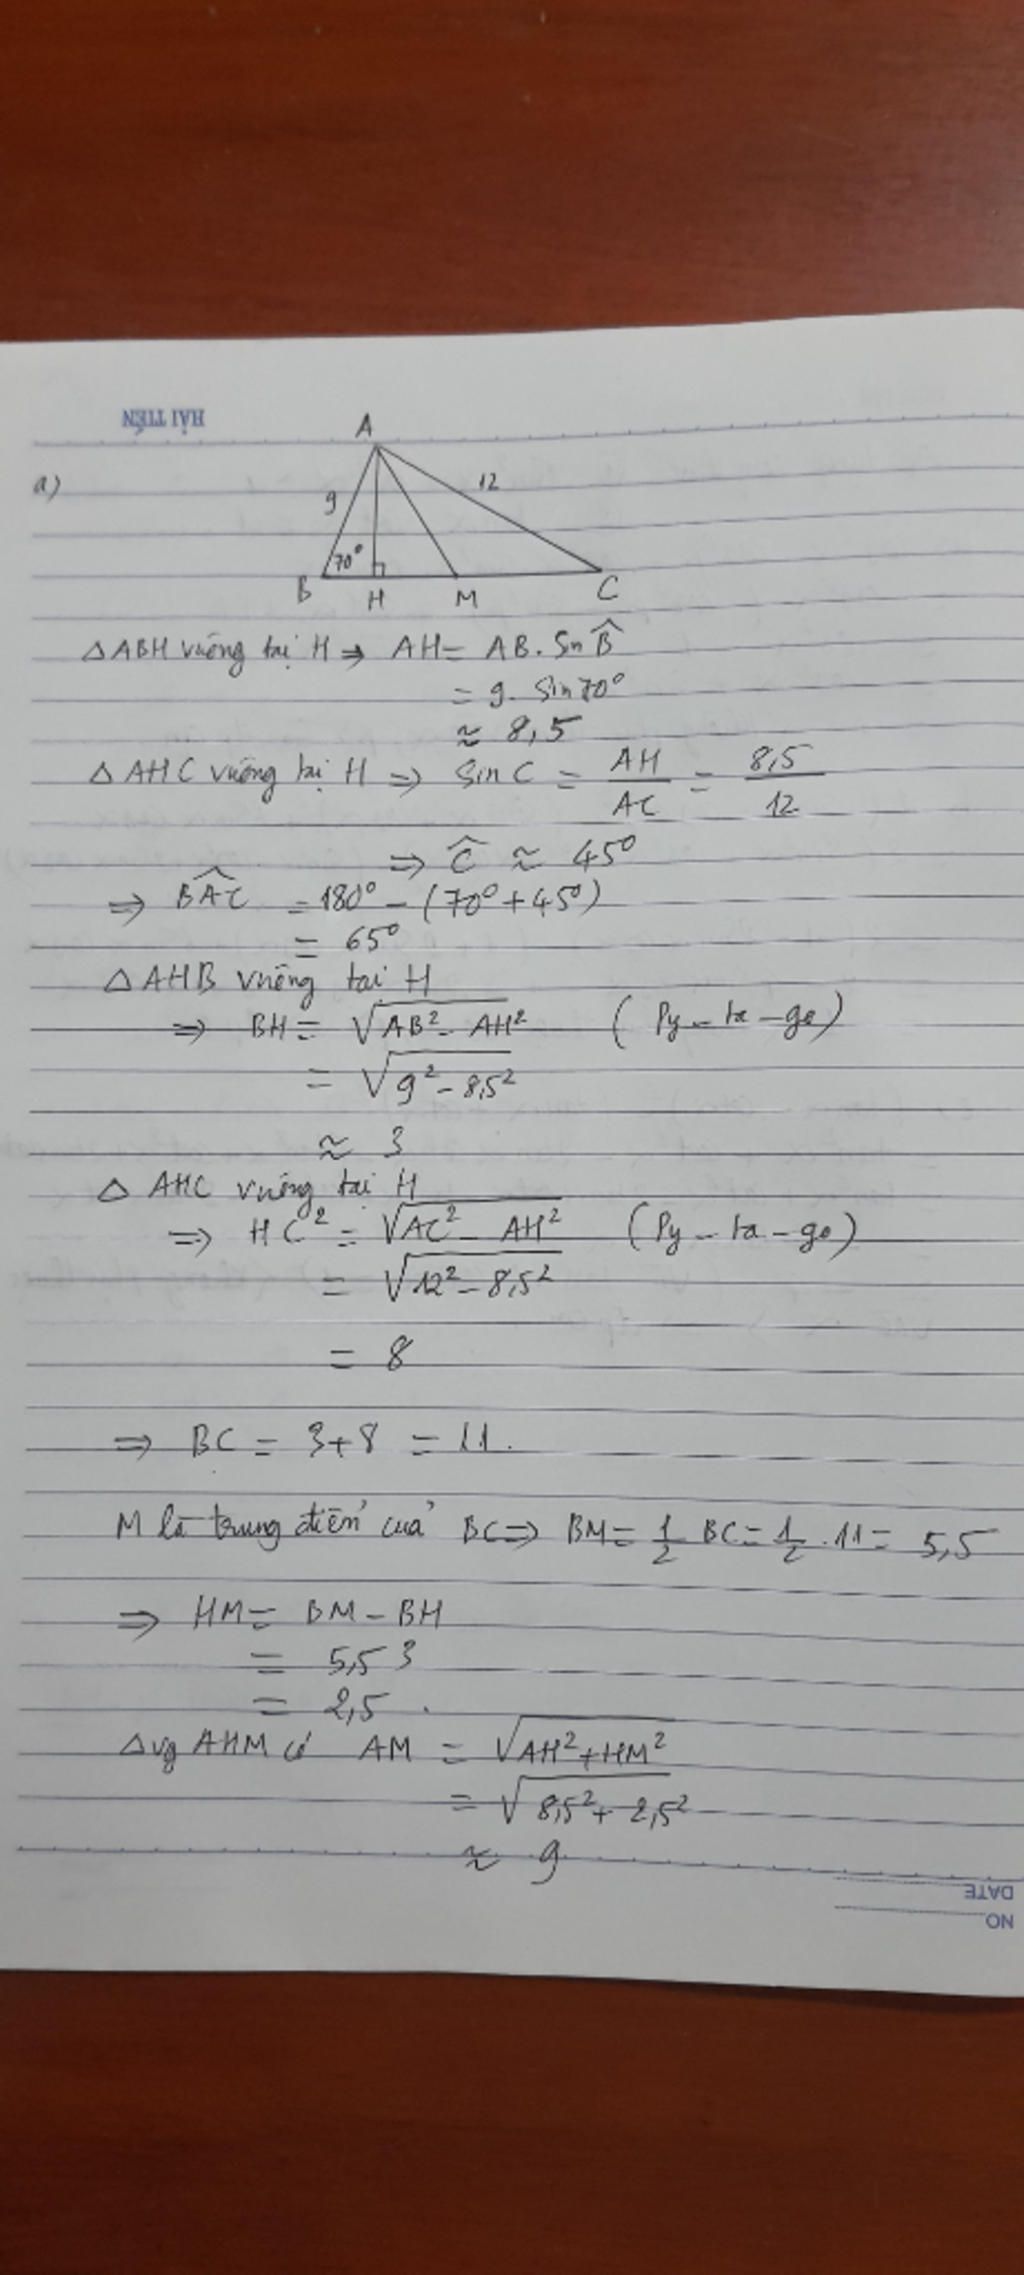 HẢI TIẾN
a)
A
9
12
70°
B H M C
△ ABH vuông tại H ⇒ AH = AB. Sin B̂
= 9. Sin 70°
≈ 8,5
△ AHC vuông tại H ⇒ Sin C = AH/AC = 8,5/12
⇒ Ĉ ≈ 45°
⇒ BÂC = 180° - (70° + 45°)
= 65°
△ AHB vuông tại H
⇒ BH = √(AB² - AH²) (Py - ta - go)
= √(9² - 8,5²)
≈ 3
△ AHC vuông tại H
⇒ HC² = √(AC² - AH²) (Py - ta - go)
= √(12² - 8,5²)
= 8
⇒ BC = 3+8 = 11.
M là trung điểm của BC ⇒ BM = 1/2 BC = 1/2 .11 = 5,5
⇒ HM = BM - BH
= 5,5 3
= 2,5.
△vg AHM có AM = √(AH² + HM²)
= √(8,5² + 2,5²)
≈ 9
DATE
NO